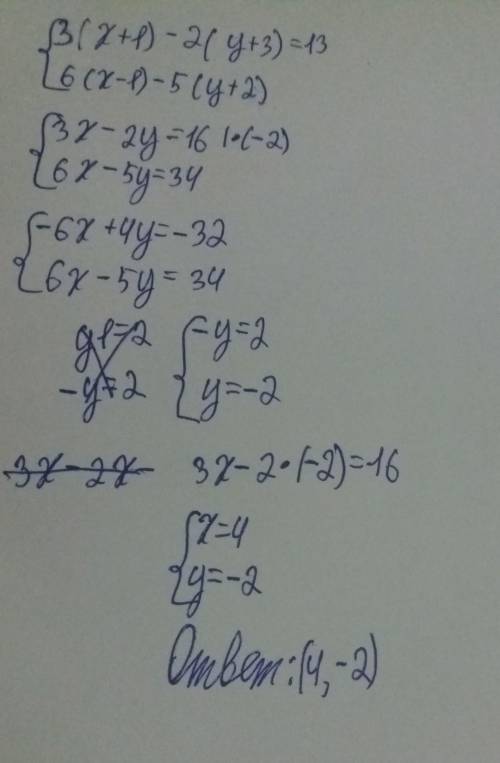 {3(x+1)-2(y+3)=13
{6(x-1)-5(y+2)
{3x-2y=16 |·(-2)
{6x-5y=34
{-6x+4y=-32
{6x-5y=34
{-y=2
{y=-2
3x-2x 3x-2·(-2)=16
{x=4
{y=-2
Ответ: (4,-2)